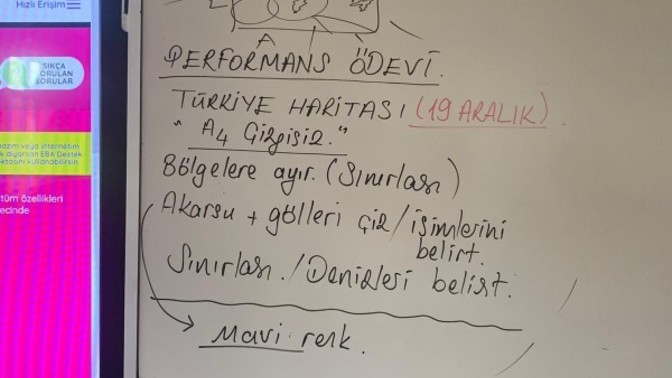 Hızlı Erişim
SIKÇA
SORULAN
SORULAR
azım veya internetim
k diyorsan EBA Destek
ktasını kullanabilirsin.
tüm özellikleri
ecinde
A
PERFORMANS ÖDEVİ.
TÜRKİYE HARİTASI (19 ARALIK)
"A4 Çizgisiz."
Bölgelere ayır. (Sınırları)
Akarsu + gölleri çiz / isimlerini
belirt.
Sınırları. / Denizleri belirt.
Mavi renk.